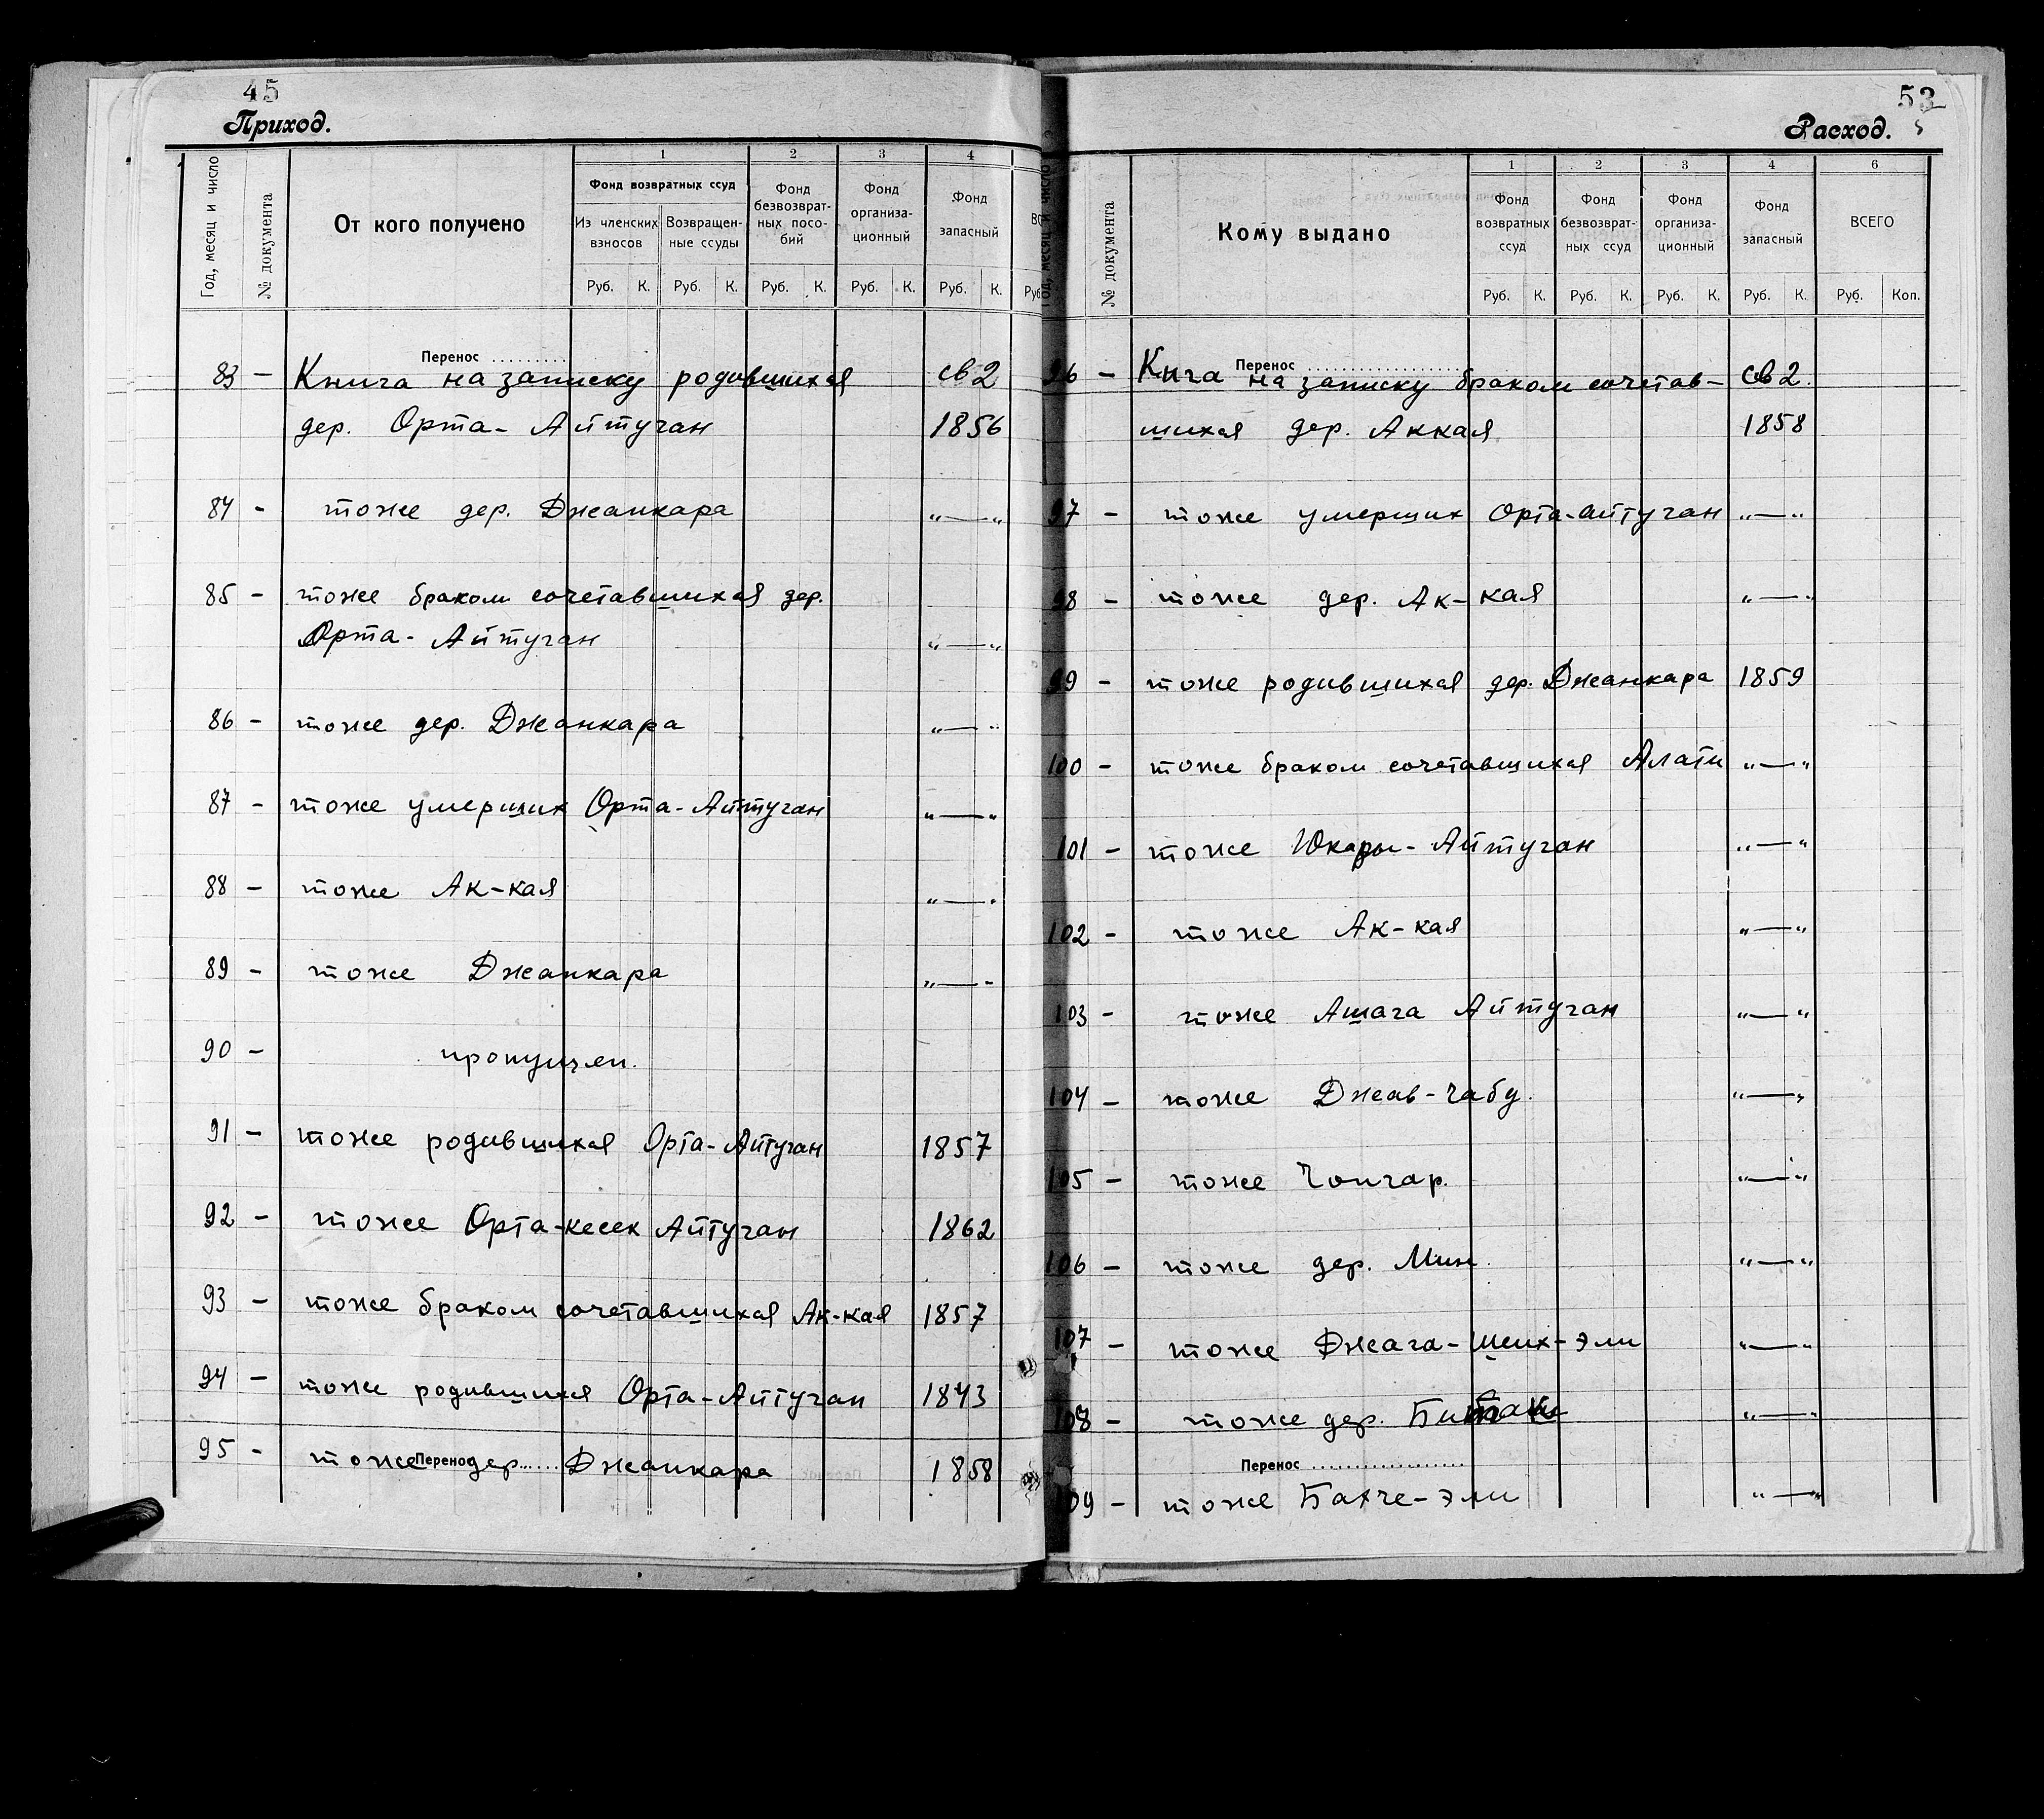 45
Приход.
Год, месяц и число
№ документа
От кого получено
1
Фонд возвратных ссуд
Из членских взносов
Возвращен-
ные ссуды
2
Фонд
безвозврат-
ных посо-
бий
3
Фонд
организа-
ционный
4
Фонд
запасный
Руб. К. Руб. К. Руб. К. Руб. К. Руб. К.
Перенос .........
83 – Книга на записку родившихся св 2
дер. Орта-Айтуган 1856
84 – тоже дер. Джанкара „—„
85 – тоже браком сочетавшихся дер.
Орта-Айтуган „—„
86 – тоже дер. Джанкара „—„
87 – тоже умерших Орта-Айтуган „—„
88 – тоже Ак-кая „—„
89 – тоже Джанкара „—„
90 – пропущен.
91 – тоже родившихся Орта-Айтуган 1857
92 – тоже Орта-кесек Айтуган 1862
93 – тоже браком сочетавшихся Ак-кая 1857
94 – тоже родившихся Орта-Айтуган 1843
95 – тоже дер. Джанкара 1858
Перенос
53
Расход.
Год, месяц и число
№ документа
Кому выдано
1
Фонд
возвратных
ссуд
2
Фонд
безвозврат-
ных ссуд
3
Фонд
организа-
ционный
4
Фонд
запасный
6
ВСЕГО
Руб. К. Руб. К. Руб. К. Руб. К. Руб. Коп.
Перенос ..................
96 – Кнга на записку браком сочетав- св 2.
шихся дер. Аккая 1858
97 – тоже умерших Орта-Айтуган „—„
98 – тоже дер. Ак-кая „—„
99 – тоже родившихся дер. Джанкара 1859
100 – тоже браком сочетавшихся „—„
101 – тоже Юкары-Айтуган „—„
102 – тоже Ак-кая „—„
103 – тоже Ашага Айтуган „—„
104 – тоже „—„
105 – тоже Чонгар. „—„
106 – тоже дер. Мин „—„
107 – тоже Джага-Шеих-эли „—„
108 – тоже дер. „—„
Перенос ..................
109 – тоже Бахче-эли „—„